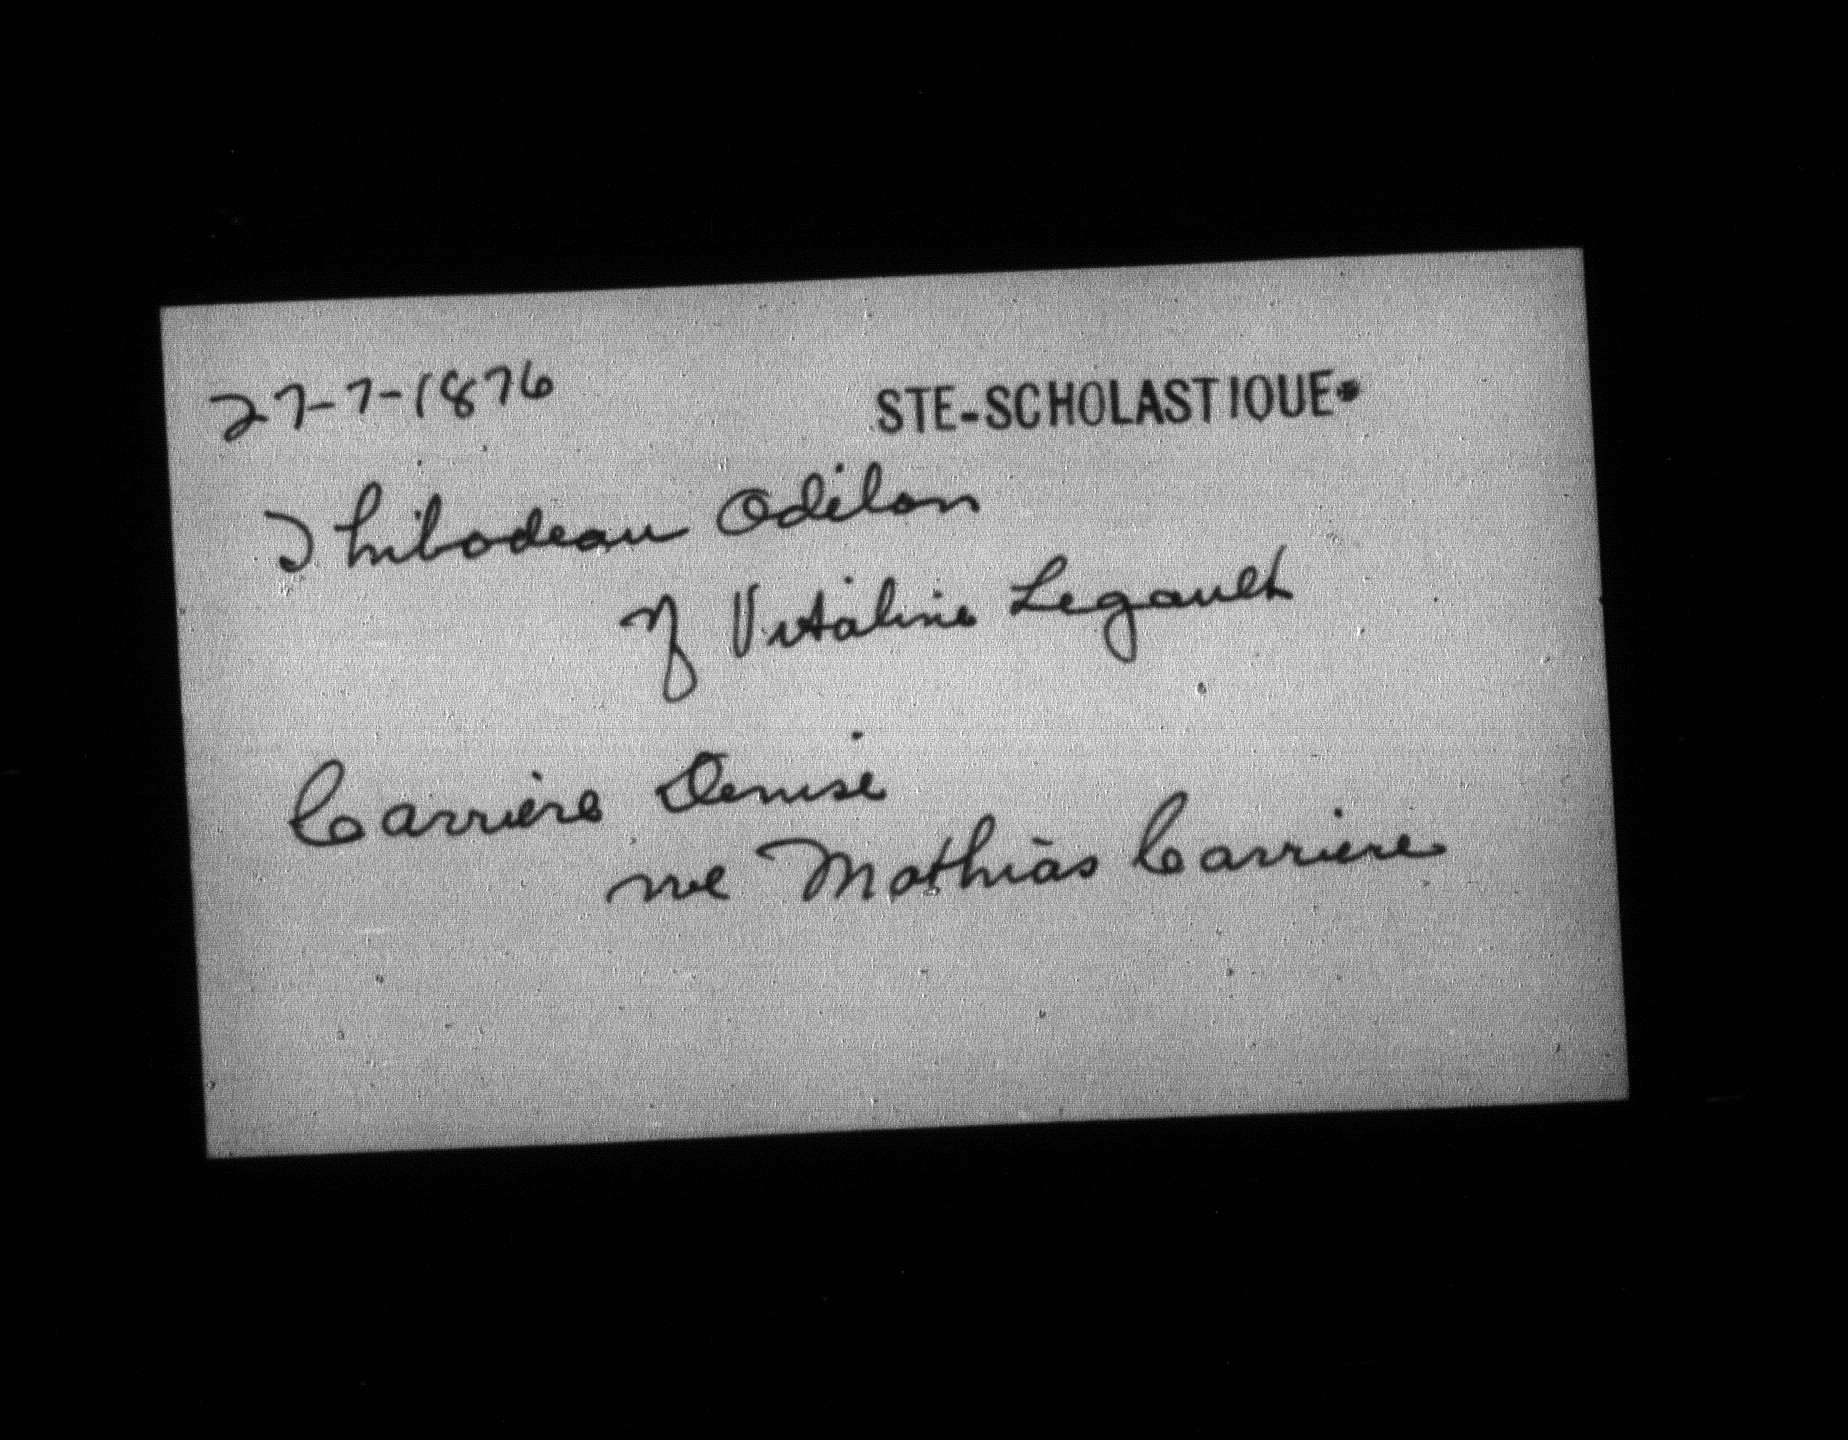 27-7-1876 STE-SCHOLASTIQUE.
Thibodeau Odilon
Vitaline Legault
Carriere Denise
Mathias Carriere